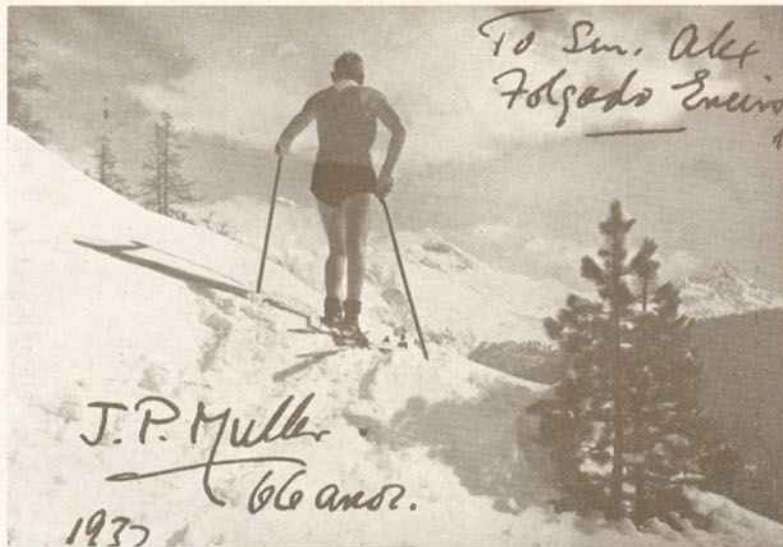 To Snr. Alex
Folgado
J.P. Muller
66 anos.
1932